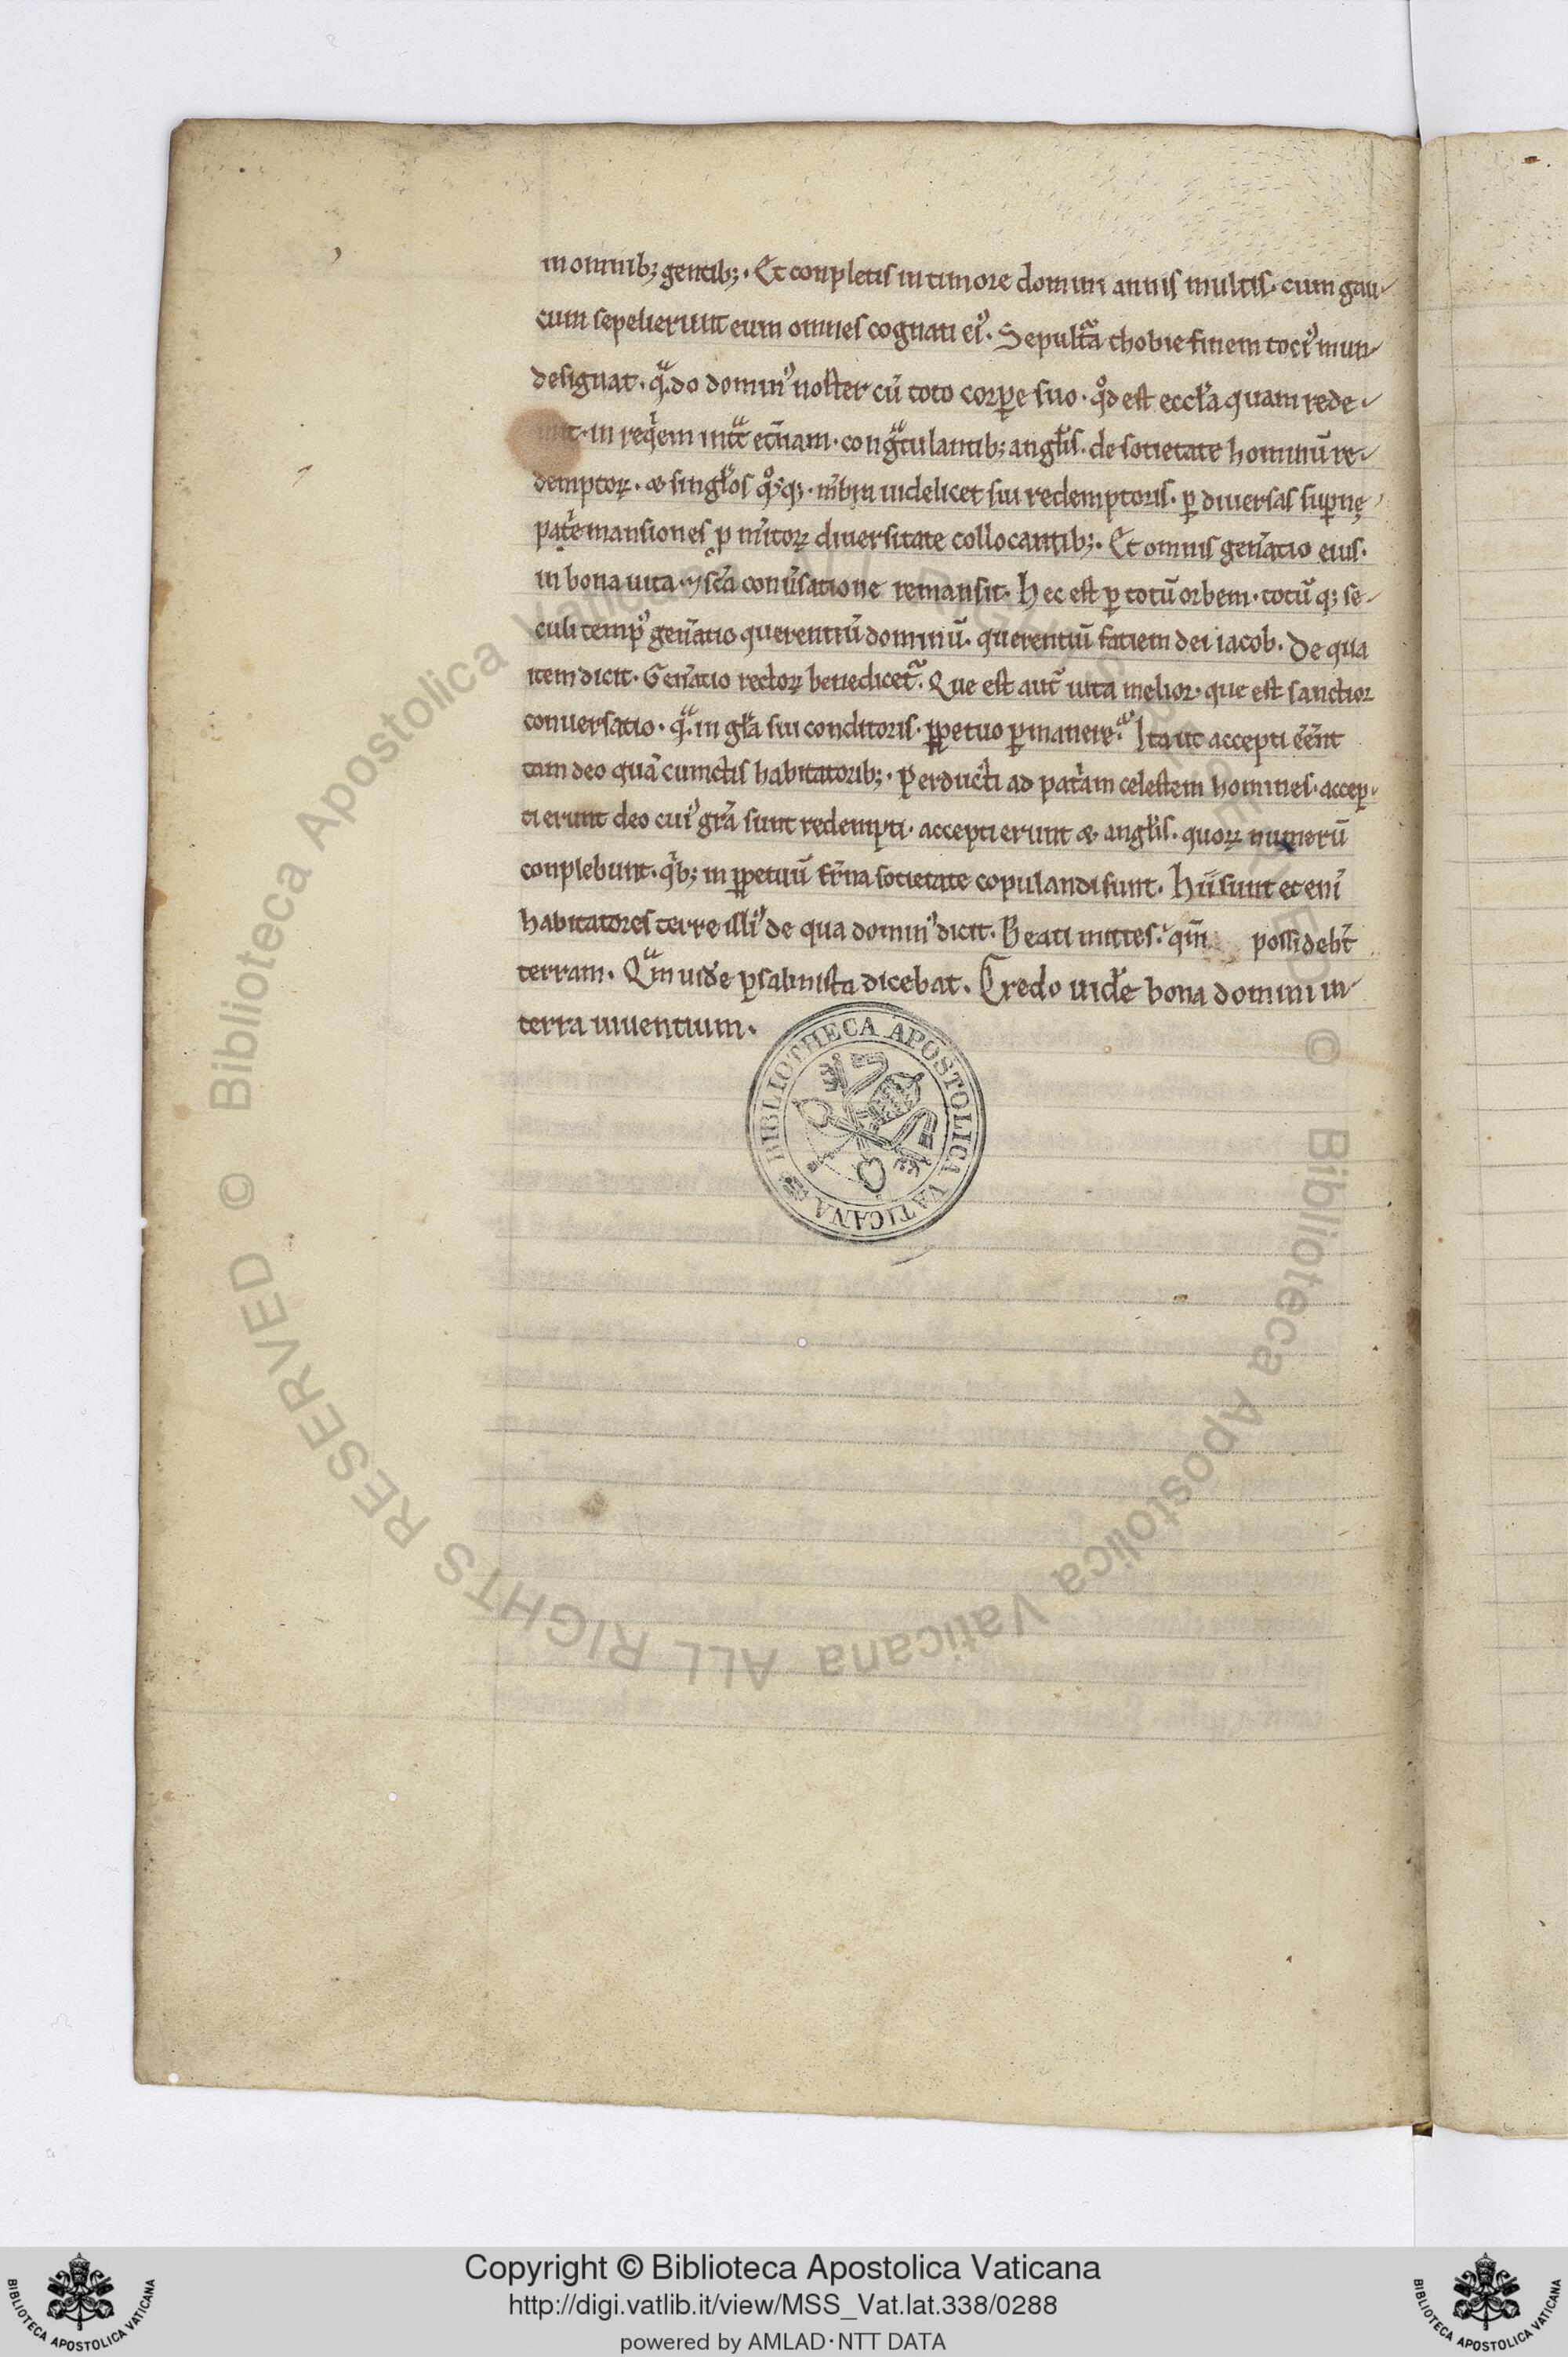 in omnib; gentib;. Et conpletis in timore domini annis multis. cum gau-
cum sepelierunt eum omnes cognati ei᾿. Sepultᷓa thobie finem toci᾿ mun-
designat. qᷓ.do domin᾿ noster cū toto corꝑe suo. qͦd est eccłᷓa quam rede-
mit. in reqͥem intᷓt et̄nam. congᷓtulantib; angłis. de sotietate hominū re-
demptoꝝ. & singłos qͦsq;. mb̄ra uidelicet sui redemptoris. ꝑ diuersas suꝑnę
patͥe mansiones ꝓ mͥitoꝝ diuersitate collocantib;. Et omnis gen̄atio eius.
in bona uita. ⁊ scā conūsatione remansit. Hec est ꝑ totū orbem. totū q; se-
culi temp᾿ gen̄atio querentiū dominū. querentiū fatiem dei iacob. De qua
item dicit. Gen̄atio rectoꝝ benedicetᷓ. Que est aut̄ uita melior. que est sanctior
conuersatio. qᷓ. in głᷓa sui conditoris. ꝑpetuo ꝑmanere. Ita ut accepti ēēnt
tam deo quā cunctis habitatorib;. Perducti ad patͥam celestem homines. accep-
ti erunt deo cui᾿ grā sunt redempti. accepti erunt & angłis. quoꝝ numerū
conplebunt. qͥb; in ꝑpetuū fr̄na sotietate copulandi sunt. Hii sunt et eni᾿
habitatores terre illi᾿ de qua domin᾿ dicit. Beati mites. qm̄ possidebt̄
terram. Qᷓm uid᾿e psalmista dicebat. Credo uid᾿e bona domini in
terra uiuentium.
BIBLIOTHECA APOSTOLICA VATICANA
© Biblioteca Apostolica Vaticana ALL RIGHTS RESERVED
© Biblioteca Apostolica Vaticana ALL RIGHTS RESERVED
Copyright © Biblioteca Apostolica Vaticana
http://digi.vatlib.it/view/MSS_Vat.lat.338/0288
powered by AMLAD·NTT DATA
BIBLIOTECA APOSTOLICA VATICANA
BIBLIOTECA APOSTOLICA VATICANA